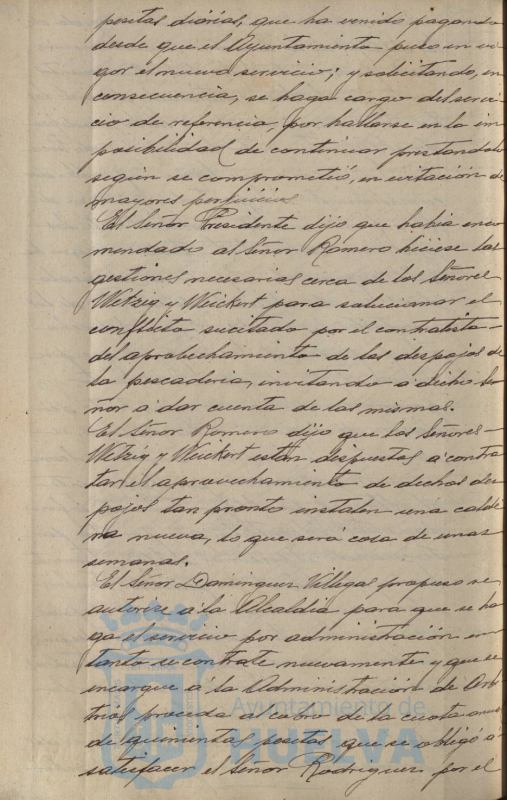 pesetas diarias, que ha venido pagando
desde que el Ayuntamiento puso en vi-
gor el nuevo servicio; y solicitando, en
consecuencia, se haga cargo del servi-
cio de referencia, por hallarse en la im-
posibilidad de continuar prestandolo
según se comprometió, en evitación de
mayores perjuicios.
El Señor Presidente dijo que habia enco-
mendado al Señor Romero hiciese las
gestiones necesarias cerca de los Señores
Wetzig y Weickert para solucionar el
conflicto sucitado por el contratista
del aprobechamiento de los despojos de
la pescaderia, invitando á dicho Se-
ñor á dar cuenta de las mismas.
El Señor Romero dijo que los Señores
Wetzig y Weickert están dispuestos á contra-
tar el aprovechamiento de dichos des-
pojos tan pronto instalen una calde-
ra nueva, lo que será cosa de unas
semanas.
El Señor Dominguez Villegas propuso se
autorize á la Alcaldia para que se ha-
ga el servicio por administración en
tanto se contrate nuevamente y que se
encargue á la Administración de Arbi-
trios proceda al cobro de la cuota
de quinientas pesetas que se obligó á
satisfacer el Señor Rodriguez por el
Ayuntamiento de
HUELVA